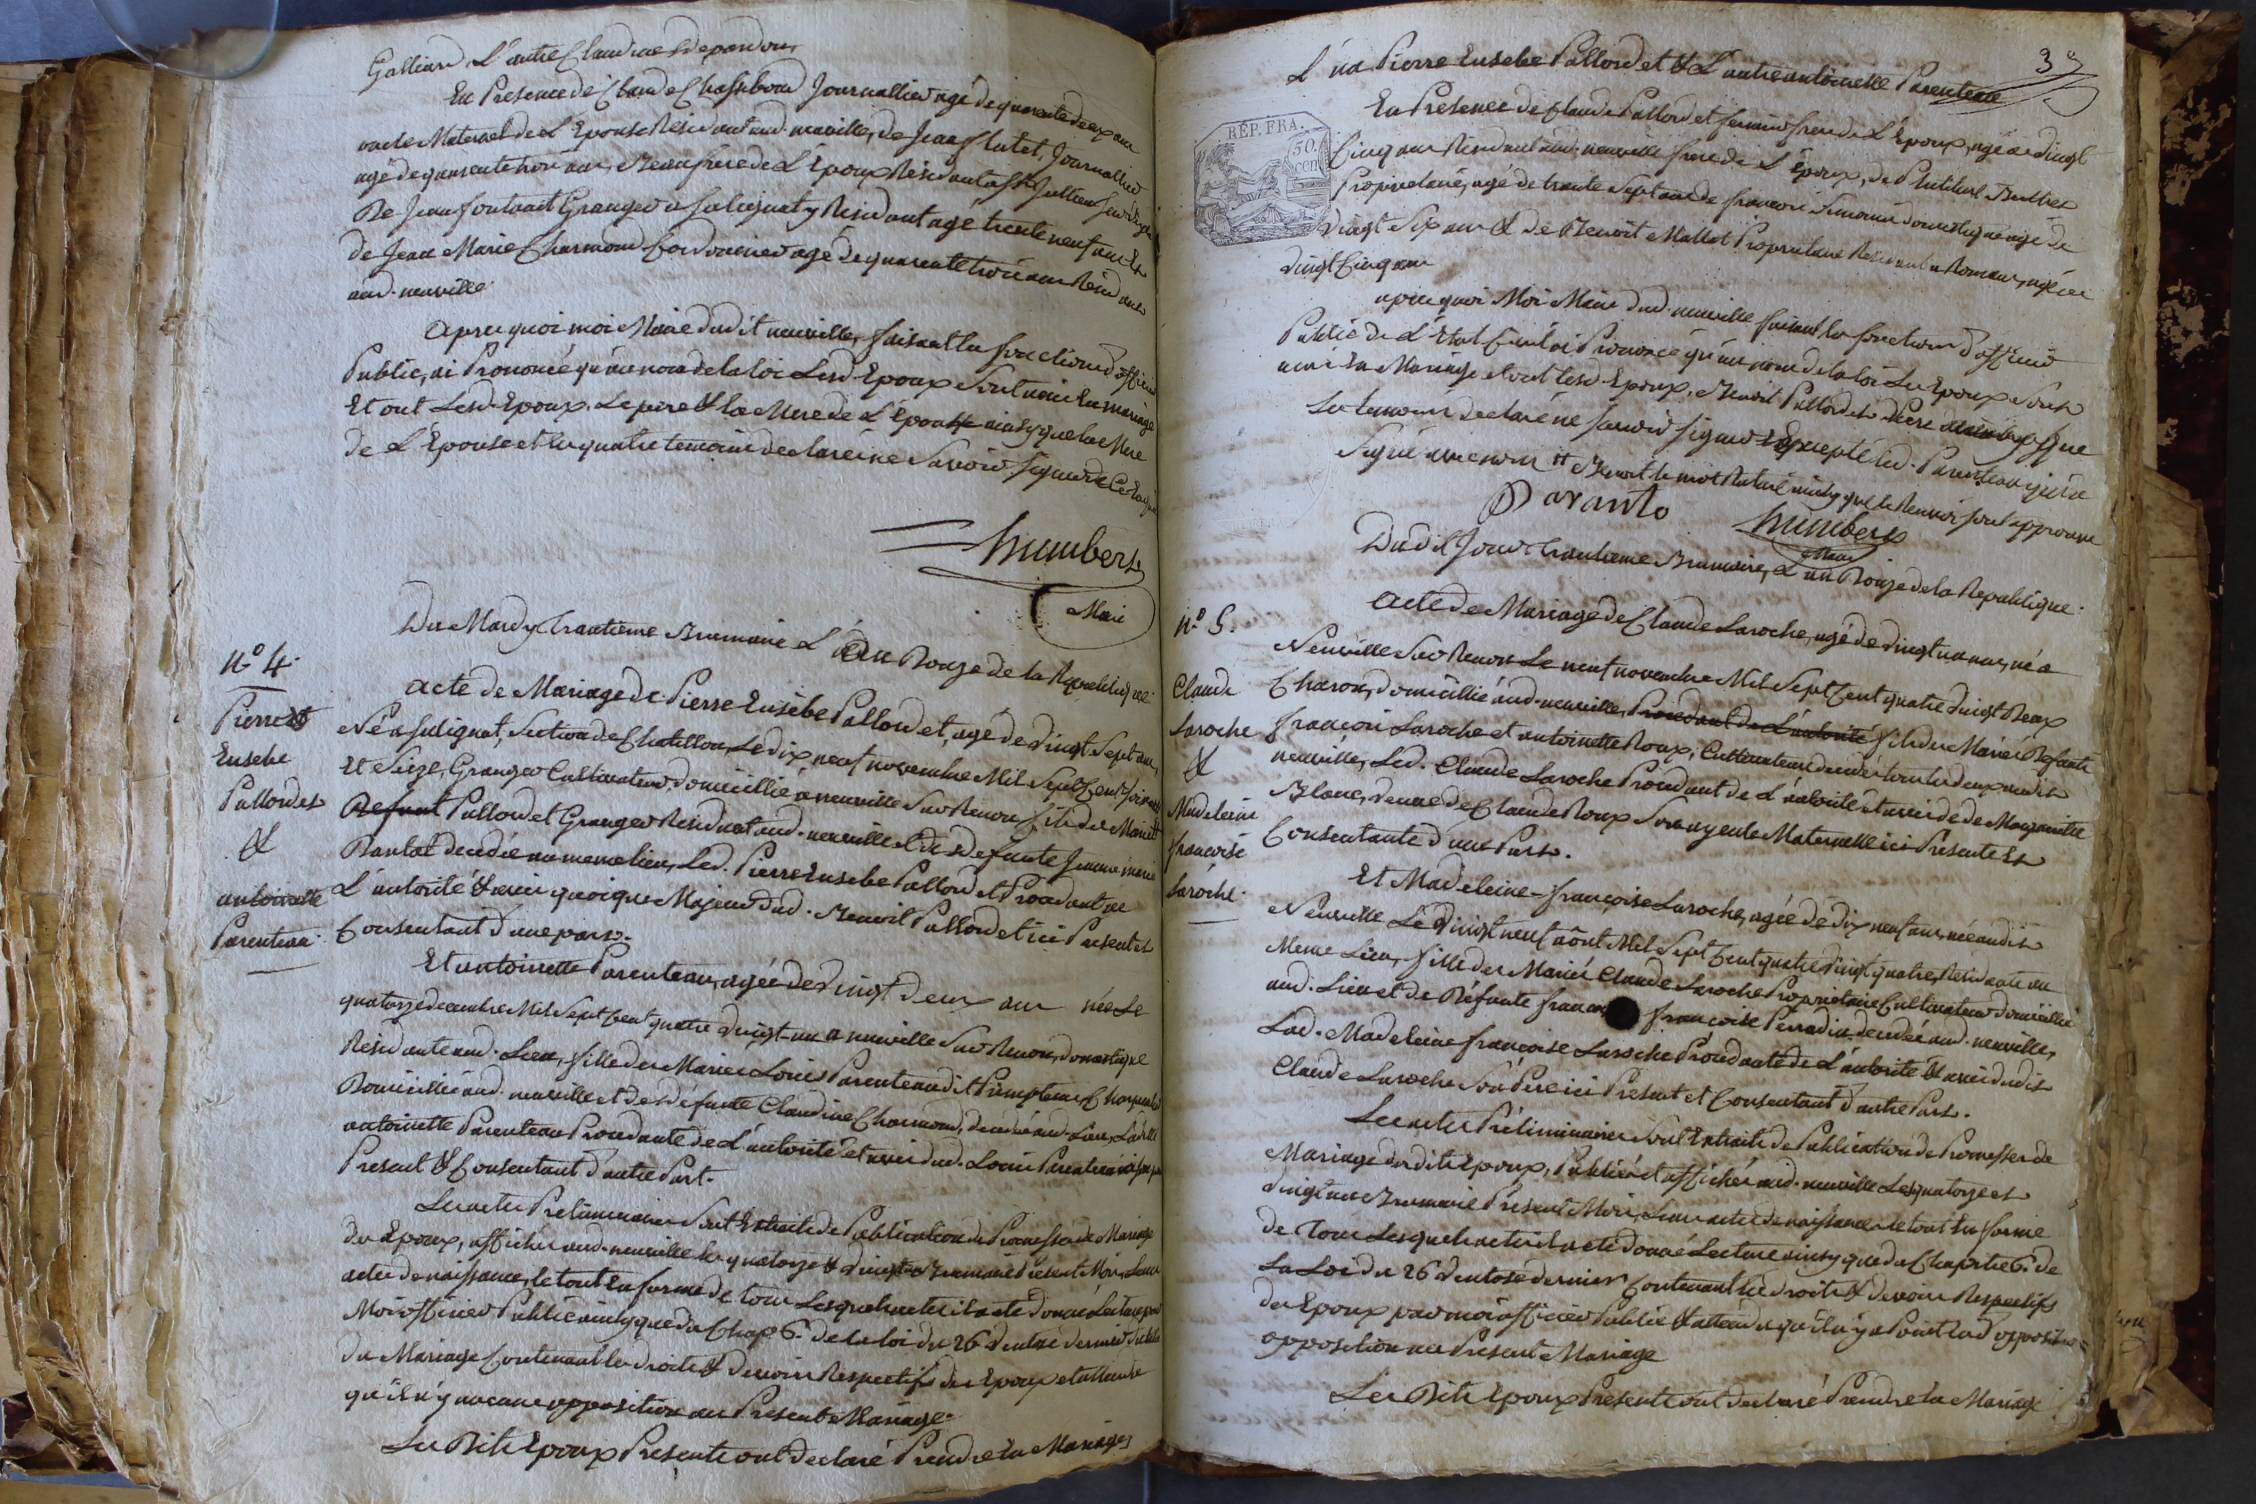 Gallian, L'autre Claudine Depardon
En Presence de Claude Chassibout Journallier agé de quarente deux ans
oncle Maternel de L'Epouse Résidant aud. neuville, de Jean flutet, Journallier
agé de quarente trois ans, Beaufrere de L'Epoux Résidant a St Jullien sur Veyle
De Jean fontvait Granger a sulignat y Résidant agé trente neuf ans Et
de Jean Marie Charmond Cordonnier agé de quarente trois ans Résidant
aud. neuville
apres quoi moi Maire dudit neuville, faisant les fonctions d'officier
Public, ai Prononcé qu'au nom de la loi Lesd. Epoux sont unis En mariage
Et ont Lesd. Epoux, Le pere & la Mere de L'Epoux ainsy que la Mere
de L'Epouse et les quatre temoins declaré ne savoir signer de Ce Enquis
humbert
Maire
Du Mardy trantieme Brumaire L'an onze de la Republique
N.º 4.
Pierre
Eusebe
Pallordet
&
antoinette
Parenteau
acte de Mariage de Pierre Eusèbe Pallordet, agé de vingt sept ans,
Né a sulignat, section de Chatillon, Le dix neuf novembre Mil Sept Cent soixante
Et Seize, Granger Cultivateur, domicillié a neuville sur Renon fils des Mariés
Defunt Pallordet Granger Résidant aud. neuville et de Defunte Jeanne marie
decedée au meme lieu, Led. Pierre Eusebe Pallordet Procedant de
L'autorité & avis quoique Majeur dud. Benoit Pallordet ici Present et
Consentant d'une part.
Et antoinette Parenteau, agée de vingt deux ans née Le
quatorze decembre Mil Sept Cent quatre vingt un a neuville sur Renon, domestique
Résidante aud. Lieu, fille des Mariés Louis Parenteau dit Printemps Charpentier
Domicillié aud. neuville et de defunte Claudine Charmond, decedée aud. Lieu, Ladite
antoinette Parenteau Procedante de L'autorité et avis dud. Louis Parenteau ici son pere
Present & Consentant d'autre Part.
Les actes Preliminaires sont Extraits de Publication de Promesses de Mariage
des Epoux, affichés aud. neuville les quatorze & vingt un Brumaire Present Mois, Leurs
actes de naissance, le tout En forme de tous Lesquels actes il a été donné Lecture par
Moi officier Public ainsy que du Chap. 6. de la loi du 26 ventose dernier
du Mariage Contenant les droits & devoirs Respectifs des Epoux et attendu
qu'il n'y a aucune opposition au Present Mariage.
Les Dits Epoux Presents ont declaré Prendre En Mariage
37
L'un Pierre Eusebe Pallordet & L'autre antoinette Parenteau
RÉP. FRA.
50.
CEN.
En Presence de Claude Pallordet fermier frere de L'Epoux, agé de vingt
Cinq ans Résidant aud. neuville frere de L'Epoux, de Philibert
Proprietaire, agé de trente sept ans de francois domestique agé de
vingt six ans & de Benoit Mallet Propriétaire Résidant a Romans, agé de
vingt Cinq ans
apres quoi Moi Maire dud. neuville faisant les fonctions d'officier
Public de L'Etat Civil ai Prononcé qu'au nom de la loi Les Epoux sont
unis En Mariage et ont lesd. Epoux, Benoit Pallordet Pere ainsy que
Les temoins declaré ne savoir signer Excepté led. Parenteau qui a
Signé avec nous Benoit le mot Raturé ainsy que le Renvoi sont approuvés
Paranto
humbert
Maire
Dudit Jour trantieme Brumaire, L'an Onze de la Republique.
N.º 5.
Claude
Laroche
&
Madeleine
francoise
Laroche.
acte de Mariage de Claude Laroche, agé de vingt un ans, né a
Neuville sur Renon Le neuf novembre Mil Sept Cent quatre vingt Deux
Charon, domicillié aud. neuville, Procedant de L'autorité fils des Mariés Defunts
francois Laroche et antoinette Roux, Cultivateurs decedés tous les deux audit
neuville, Led. Claude Laroche Procedant de L'autorité et avis de Marguerite
Blanc, veuve de Claude Roux Son ayeule Maternelle ici Presente Et
Consentante d'une Part.
Et Madeleine-françoise Laroche, agée de dix neuf ans, née audit
Neuville Le vingt neuf aôut Mil Sept Cent quatre vingt quatre, Résidante au
Meme Lieu, fille des Mariés Claude Laroche Propriétaire Cultivateur domicillié
aud. Lieu et de Défunte françoise Perradin decedée aud. neuville,
Lad. Madeleine françoise Laroche Procedante de L'autorité & avis dudit
Claude Laroche Son Père ici Present et Consentant d'autre Part.
Les actes Préliminaires sont Extraits de Publication de Promesses de
Mariage desdits Epoux, Publiés et affichés aud. neuville Les quatorze et
vingt un Brumaire Présent Mois, Leurs actes de naissance le tout En forme
de tous Lesquels actes il a eté donné Lecture ainsy que du Chapitre 6. de
La Loi du 26 Ventose dernier Contenant les droits & devoirs Respectifs
des Epoux par moi officier Public & attendu qu'il n'y a Point Eu d'opposition
opposition au Présent Mariage
Les Dits Epoux Présents ont declaré Prendre En Mariage